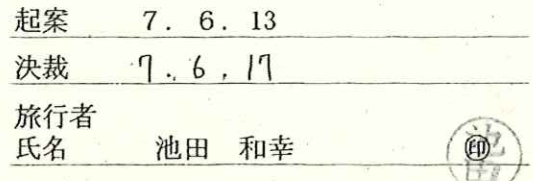 起案 7. 6. 13
決裁 7. 6. 17
旅行者
氏名 池田 和幸 ㊞
池田